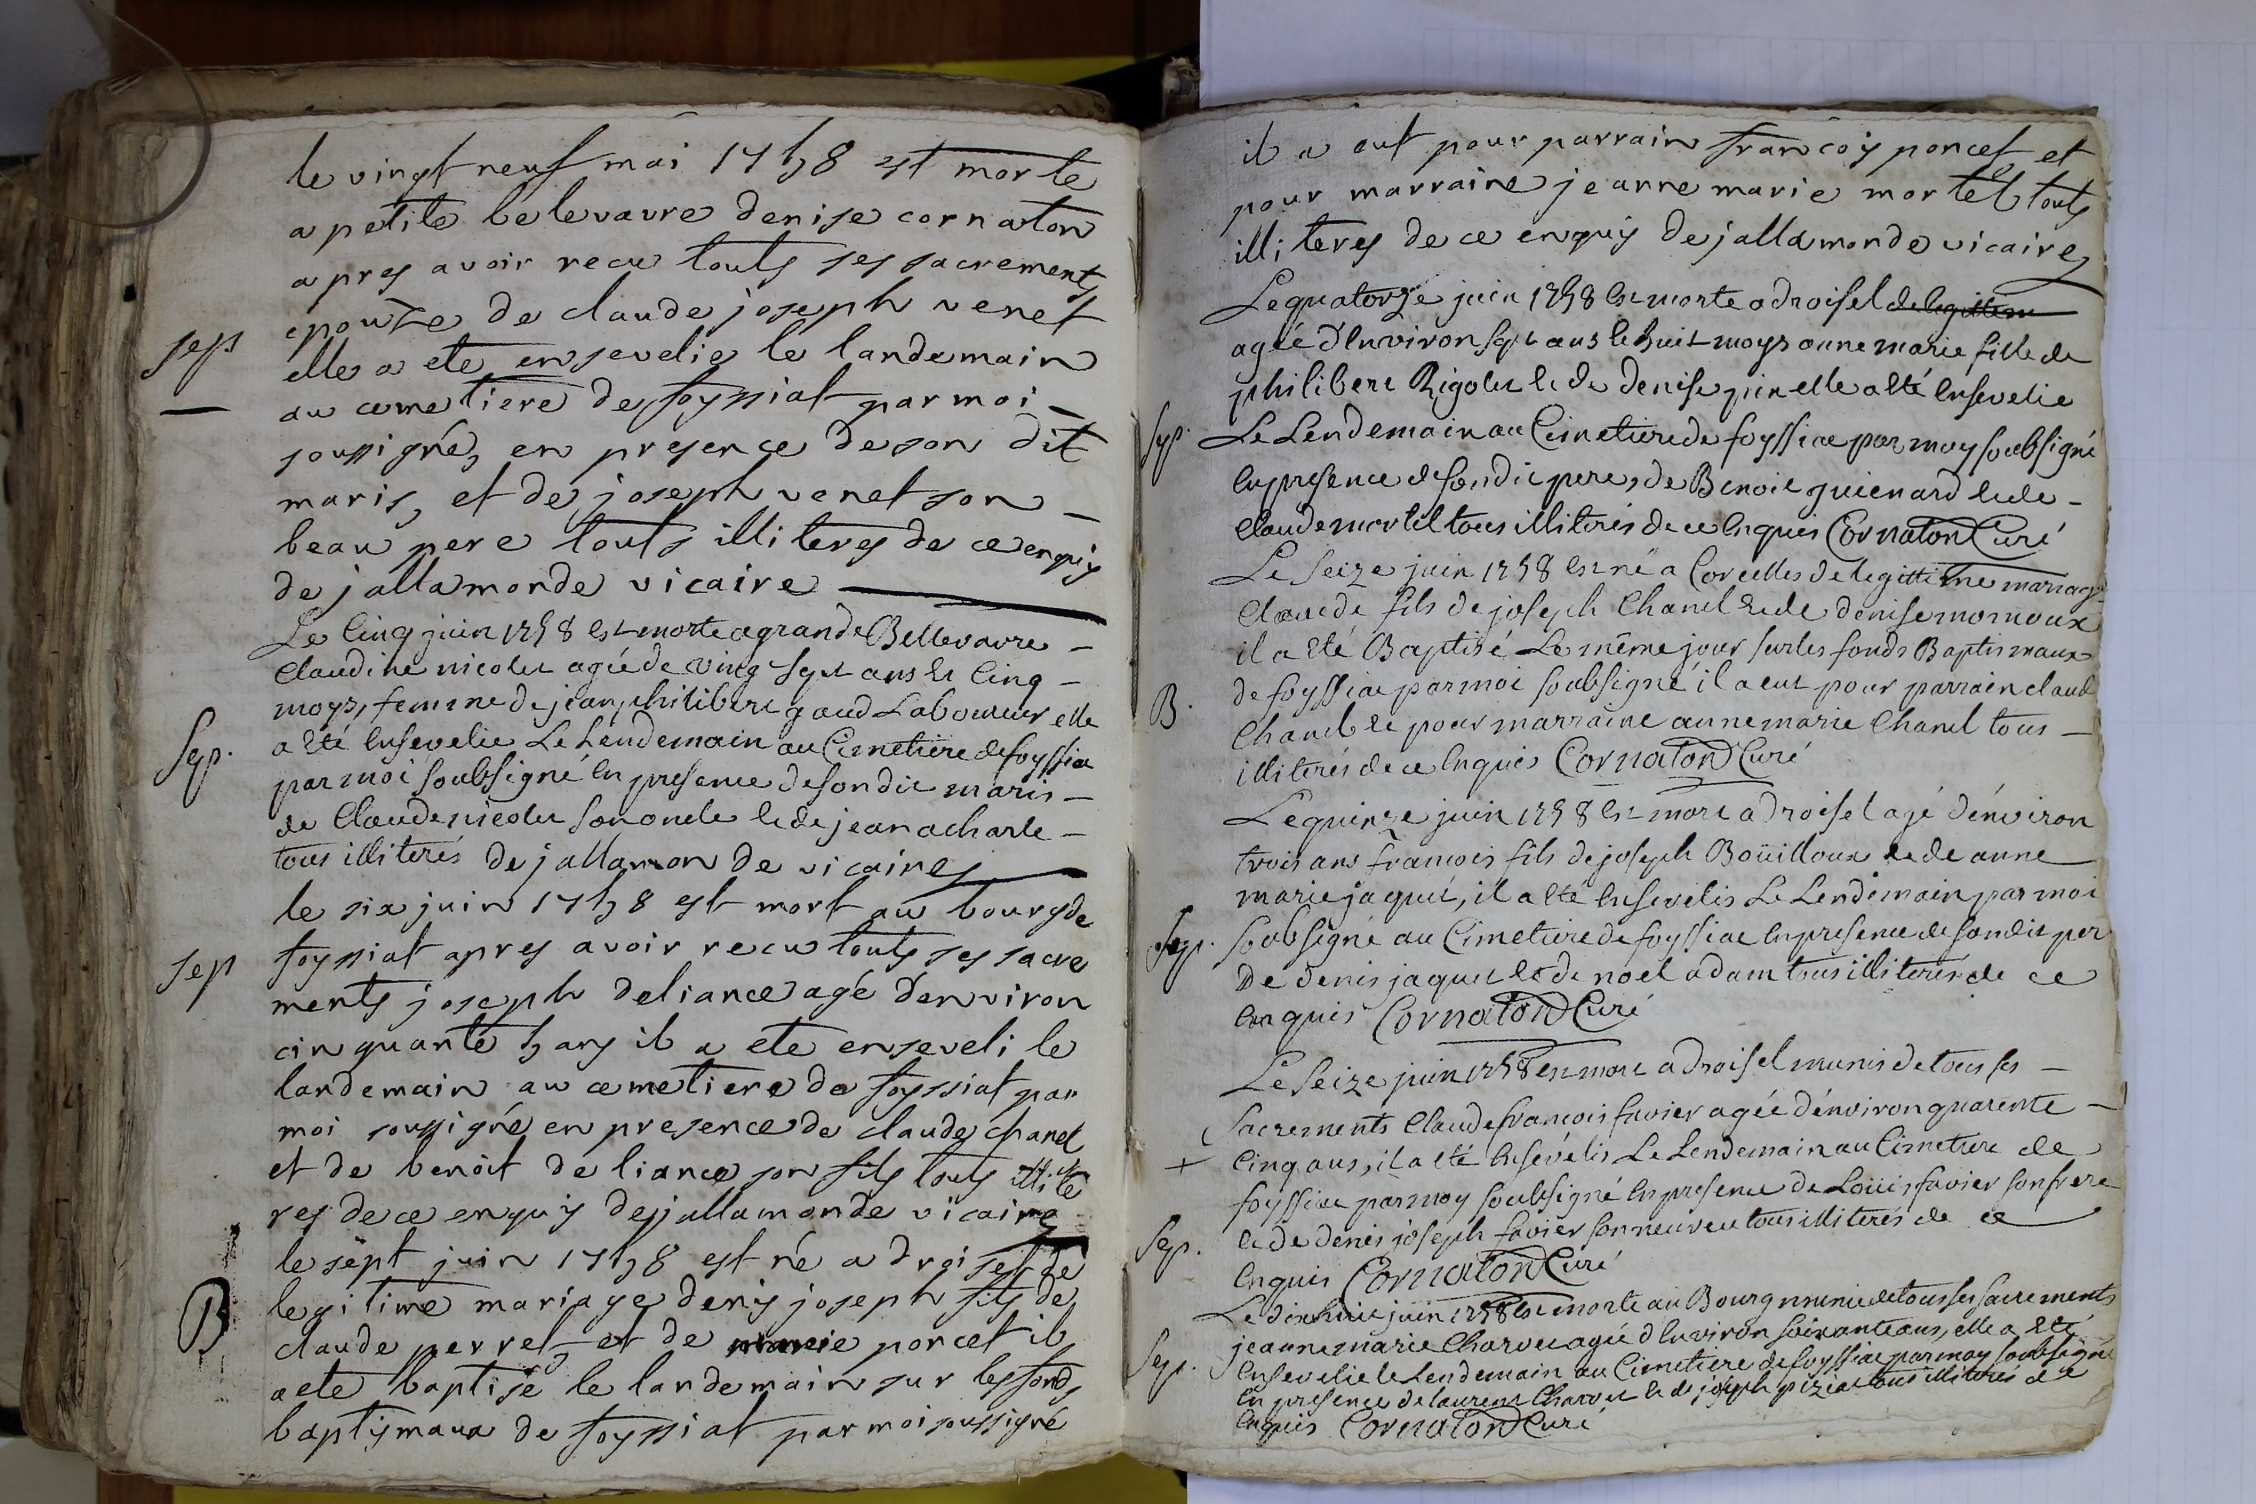 le vingt neuf mai 1758 est morte
a petite belevavre denise cornaton
apres avoir recu touts ses sacrements
epouze de claude joseph venet
sep. elle a ete ensevelie le landemain
au cemetiere de foyssiat par moi
soussigné, en presence de son dit
maris, et de joseph venet son
beau pere touts illiteres de ce enquis
dejallamonde vicaire
Le Cinq juin 1758 est morte a grande Bellevavre
Claudine nicolet agée de vingt sept ans et Cinq
moys, femme de jean philibert gaud Laboureur elle
Sep. a eté Ensevelie Le Lendemain au Cimetiere de foyssiat
par moi soubsigné En presence de son dit maris
de Claude nicolet son oncle et de jean acharle
tous illiterés dejallamonde vicaire
le six juin 1758 est mort au bourg de
sep foyssiat apres avoir recu touts ses sacre
ments joseph deliance agé d'environ
cinquante 5 ans il a ete enseveli le
landemain au cemetiere de foyssiat par
moi soussigné en presence de claude chanel
et de benoit deliance son fils touts illite
res de ce enquis dejjallamonde vicaire
le sept juin 1758 est né a droisel de
B legitime mariage denis joseph fils de
claude perret et de marie poncet il
a ete baptisé le landemain sur les fonds
baptismaux de foyssiat par moi soussigné
il a eut pour parrain francois poncet et
pour marraine jeanne marie mortel touts
illiteres de ce enquis dejallamonde vicaire
Le quatorze juin 1758 est morte a droisel de legittim
agée d'Environ sept ans et huit moys anne marie fille de
philibert Rigolet et de denise puin elle a eté Ensevelie
Sep. Le Lendemain au Cimetiere de foyssiat par moy soubsigné
En presence de son dit pere, de Benoit guienard et de
Claude mortel tous illiterés de ce Enquis Cornaton Curé
Le Seize juin 1758 est né a Corcelles de legittime mariage
Claude fils de joseph Chanel et de denise mornoux
il a eté Baptisé Le même jour sur les fonds Baptismaux
B. de foyssiat par moi soubsigné il a eut pour parrain claude
Chanel et pour marraine anne marie Chanel tous
illiterés de ce Enquis Cornaton Curé
Le quinze juin 1758 est mort a Droisel agé d'énviron
trois ans françois fils de joseph Boüilloux et de anne
marie jaquet, il a eté Ensevelis Le Lendemain par moi
Sep. soubsigné au Cimetiere de foyssiat En presence de son dit per
De denis jaquet et de noel adam tous illiterés de ce
Enquis Cornaton Curé
Le Seize juin 1758 est mort a Droisel munis de tous ses
Sacrements Claude françois favier agée d'énviron quarente
+ Cinq ans, il a eté Ensévélis Le Lendemain au Cimetiere de
foyssiat par moy soubsigné En presence de Loüis favier son frere
Sep. et de denis joseph favier son neuveu tous illiterés de ce
Enquis Cornaton Curé
Le dixhuit juin 1758 est morte au Bourg munie de tous ses sacrements
jeanne marie Charvet agée d'Environ soixante ans, elle a eté
Sep. Ensevelie le Lendemain au Cimetiere de foyssiat par moy soubsigné
En presence de laurent Charvet et de joseph piziat tous illiterés de ce
Enquis Cornaton Curé